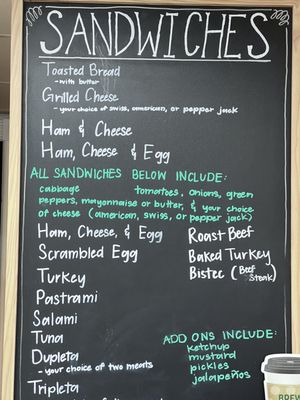 SANDWICHES
Toasted Bread
- with butter
Grilled Cheese
- your choice of swiss, american, or pepper jack
Ham & Cheese
Ham, Cheese & Egg
ALL SANDWICHES BELOW INCLUDE:
cabbage tomatoes, onions, green
peppers, mayonnaise or butter, & your choice
of cheese (american, swiss, or pepper jack)
Ham, Cheese, & Egg
Scrambled Egg
Turkey
Pastrami
Salami
Tuna
Dupleta
- your choice of two meats
Tripleta
Roast Beef
Baked Turkey
Bistec (Beef Steak)
ADD ONS INCLUDE:
ketchup
mustard
pickles
jalapeños
BREW